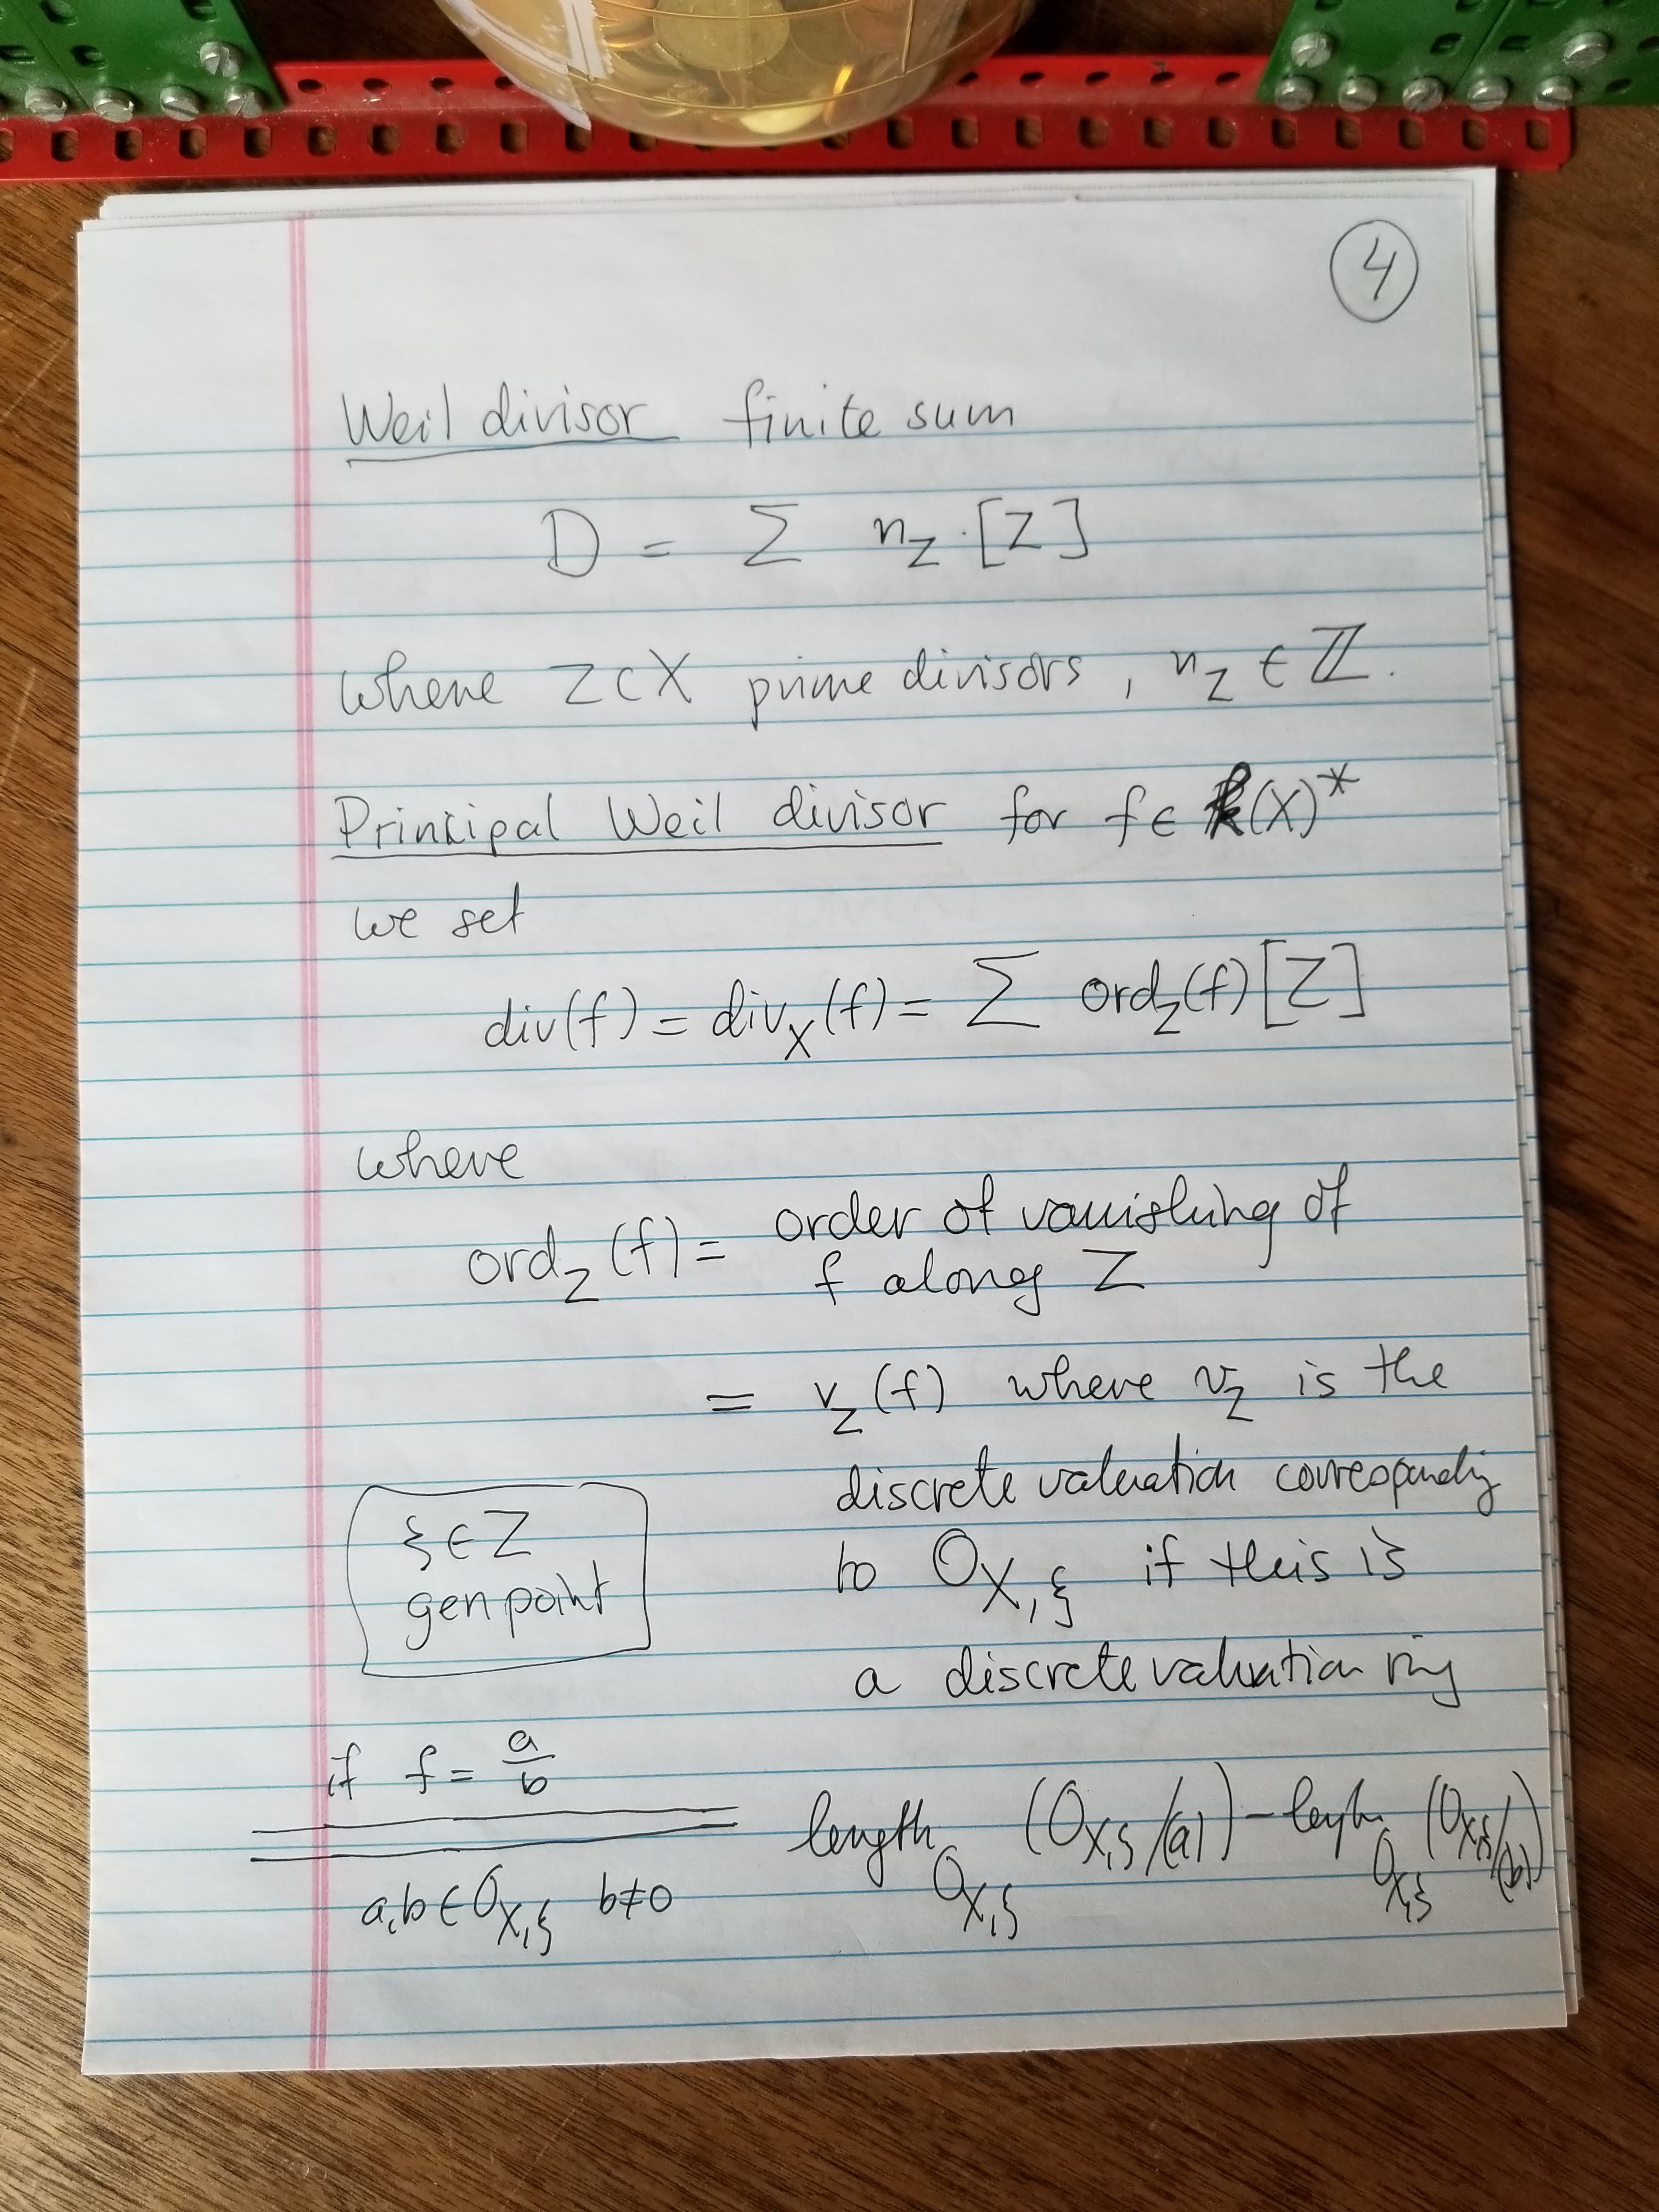 4
Weil divisor finite sum
D = Σ n_Z · [Z]
where Z ⊂ X prime divisors, n_Z ∈ ℤ.
Principal Weil divisor for f ∈ k(X)*
we set
div(f) = div_X(f) = Σ ord_Z(f) [Z]
where
ord_Z(f) = order of vanishing of
f along Z
= v_Z(f) where v_Z is the
discrete valuation corresponding
ξ ∈ Z
to O_{X,ξ} if this is
gen point
a discrete valuation ring
if f = a/b
length_{O_{X,ξ}} (O_{X,ξ}/(a)) - length_{O_{X,ξ}} (O_{X,ξ}/(b))
a, b ∈ O_{X,ξ} b ≠ 0